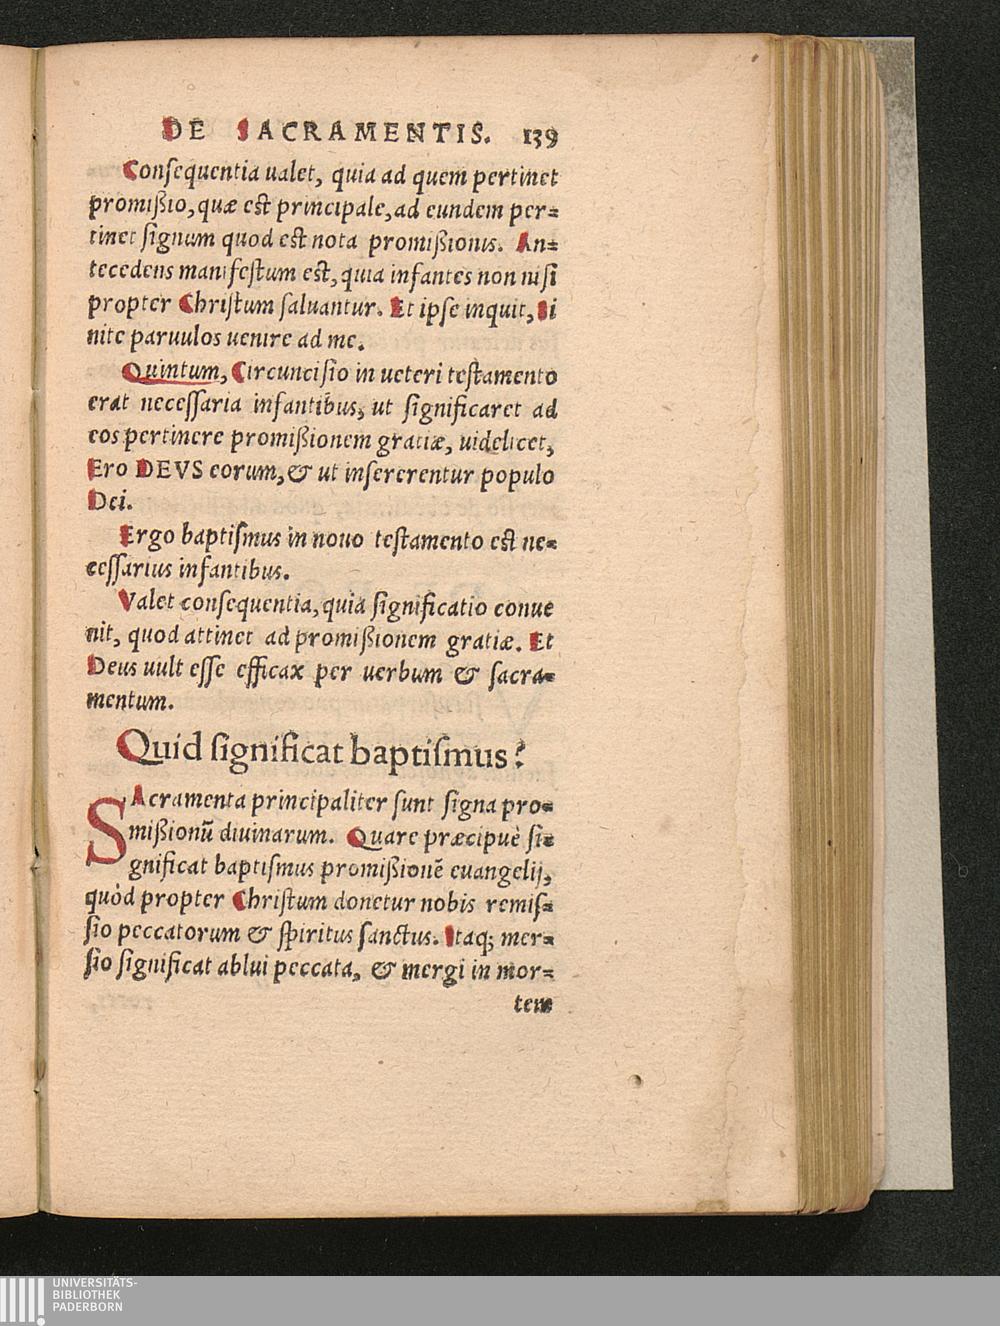 DE SACRAMENTIS. 139
Conſequentia ualet, quia ad quem pertinet
promißio, quæ eſt principale, ad eundem per=
tinet ſignum quod eſt nota promißionis. An=
tecedens manifeſtum eſt, quia infantes non niſi
propter Chriſtum ſaluantur. Et ipſe inquit, Si
nite paruulos uenire ad me.
Quintum, Circunciſio in ueteri teſtamento
erat neceſſaria infantibus, ut ſignificaret ad
eos pertinere promißionem gratiæ, uidelicet,
Ero DEVS eorum, & ut inſererentur populo
Dei.
Ergo baptiſmus in nouo teſtamento eſt ne=
ceſſarius infantibus.
Valet conſequentia, quia ſignificatio conue
nit, quod attinet ad promißionem gratiæ. Et
Deus uult eſſe efficax per uerbum & ſacra=
mentum.
Quid ſignificat baptiſmus?
SAcramenta principaliter ſunt ſigna pro=
mißionū diuinarum. Quare præcipuè ſi=
gnificat baptiſmus promißionē euangelij,
quòd propter Chriſtum donetur nobis remiſ=
ſio peccatorum & ſpiritus ſanctus. Itaq; mer=
ſio ſignificat ablui peccata, & mergi in mor=
tem
UNIVERSITÄTS-
BIBLIOTHEK
PADERBORN